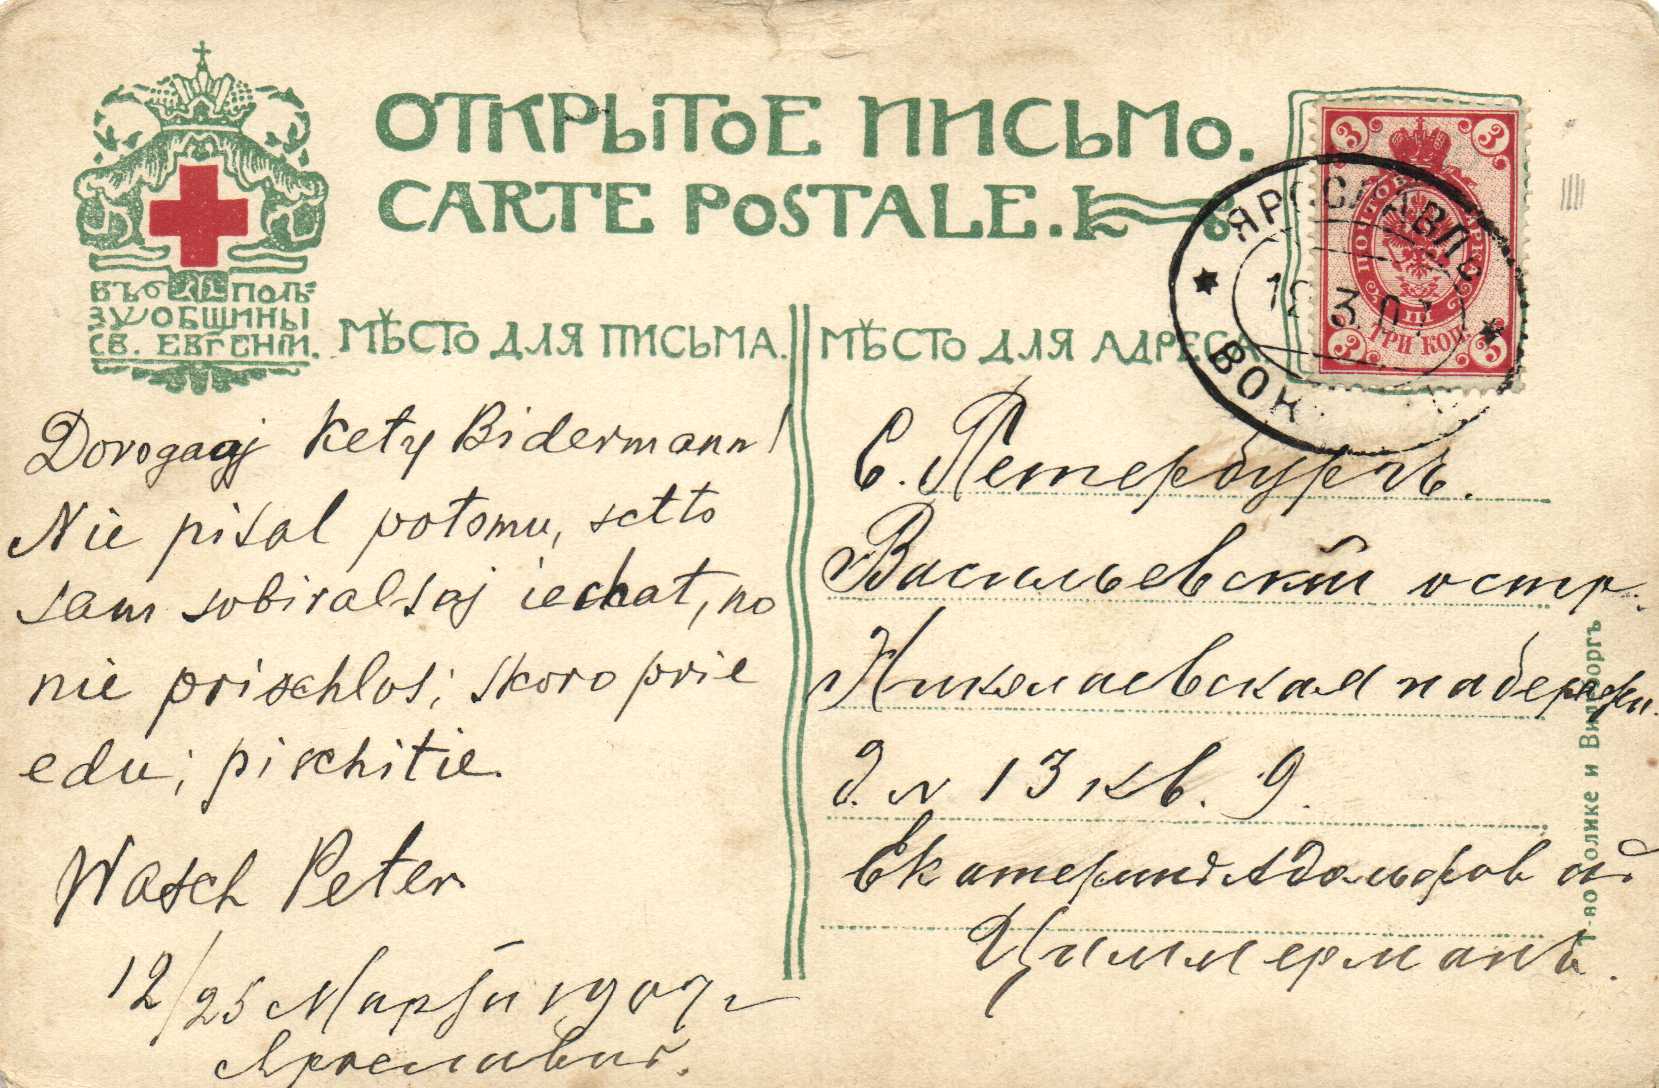 ОТКРЫТОЕ ПИСЬМО.
CARTE POSTALE.
ВЪ ПОЛЬ-
ЗУ ОБЩИНЫ
СВ. ЕВГЕНІИ.
МѢСТО ДЛЯ ПИСЬМА.
МѢСТО ДЛЯ АДРЕСА
3 3
ПОЧТОВ МАРКА
III
ТРИ КОП.
3 3
ЯРОСЛАВЛЬ
3 07
ВОК
Dorogaaj Kety Bidermann!
Nie pisal potomu, schto
sam sobiralsaj iechat, no
nie prischlos; skoro prie
edu; pischitie.
Wasch Peter
12/25 Марта 1907 г
Ярославль.
С. Петербургъ.
Васильевскій остр.
Николаевская набережн.
д. № 13 кв. 9.
Екатеринѣ Адольфовнѣ
Циммерманъ.
Т-во Голике и Вильборгъ